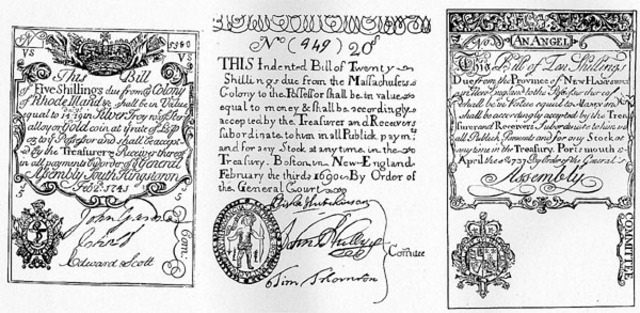 VS
5980
VS
This Bill
of Five Shillings due from the Colony
of Rhode Island shall be in Value
equal to Silver Troy
alloy or Gold coin at
Possessor and shall be accep
by the Treasurer & Receiver thereof
in all payments by order of General
Assembly South Kingstown
John
Edward Scott
No (949) 20s
THIS Indented Bill of Twenty
Shillings due from the Massachusets
Colony to the Possessor shall be in value
equal to money & shall be accordingly
accepted by the Treasurer and Receivers
subordinate to him in all Publick paymts
and for any Stock at any time in the
Treasury. Boston in New-England
February the third 1690 By Order of
the General Court
Comitee
Tim Thornton
No
AN ANGEL
This Bill of Ten Shillings
Due from the Province of New Hampshire
in New England to the Possessor
shall be in Value equal to
shall be accordingly accepted by the Trea
surer and Receivers Subordinate to him in
all Publick Payments and for any Stock at
any time in the Treasury. Portsmouth
April the 1737 By Order of the General
Assembly
COMMITTEE